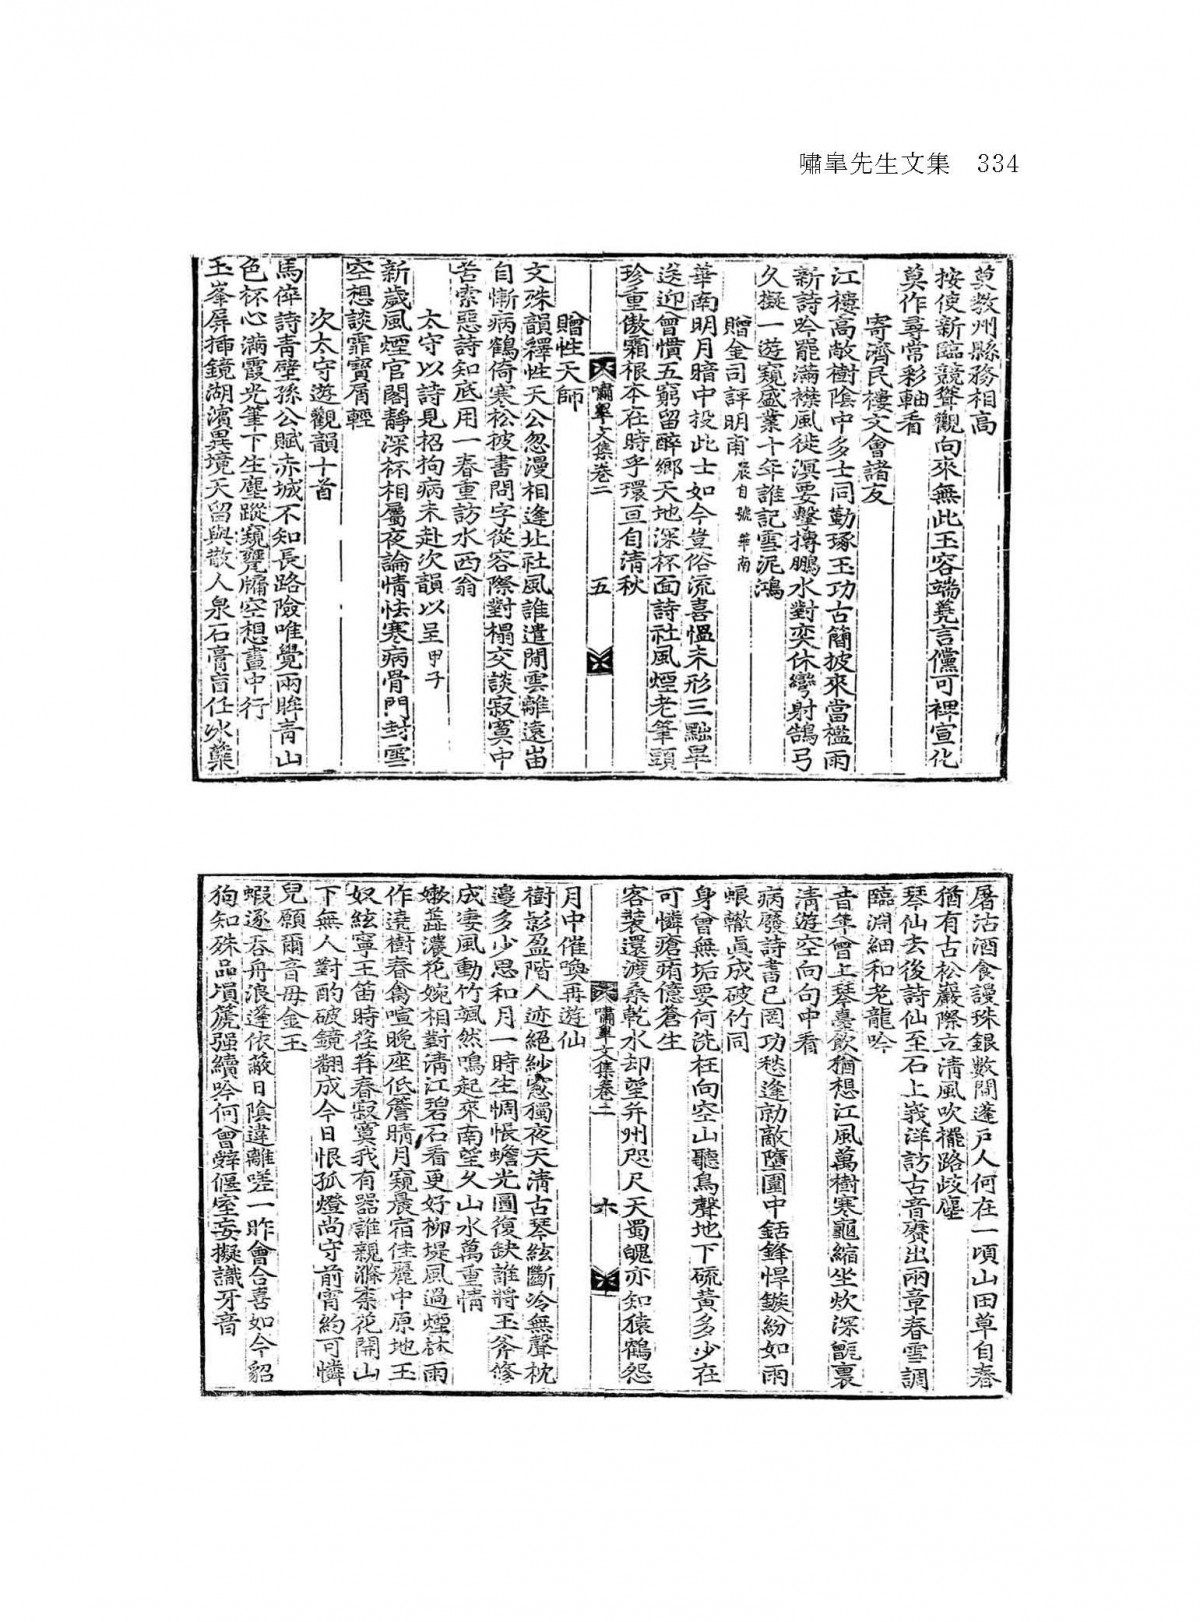 嘯皐先生文集 334
莫敎州縣務相高
按使新臨競聳觀向來無此玉容端蕘言儻可裨宣化
莫作尋常彩軸看
寄濟民樓文會諸友
江樓高敞樹陰中多士同勤琢玉功古簡披來當檻雨
新詩吟罷滿襟風徙溟要擊摶鵬水對奕休彎射鵠弓
久擬一遊窺盛業十年誰記雪泥鴻
贈金司評明甫 晨自號華南
華南明月暗中投此士如今豈俗流喜慍未形三黜畢
送迎曾憤五窮留醉鄉天地深杯面詩社風煙老筆頭
珍重傲霜根本在時乎環亘自清秋
嘯皐文集卷二 五
贈性天師
文殊韻釋性天公忽漫相逢北社風誰遣閒雲離遠峀
自慚病鶴倚寒松披書問字從容際對榻交談寂寞中
苦索惡詩知底用一春重訪水西翁
太守以詩見招拘病未赴次韻以呈 甲子
新歲風煙官閣靜深杯相屬夜論情怯寒病骨門封雪
空想談霏寶屑輕
次太守遊觀韻十首
馬倅詩靑壁孫公賦赤城不知長路險唯覺兩眸靑山
色杯心滿霞光筆下生塵蹤窺甕牖空想畫中行
玉峯屛揷鏡湖濱異境天留與散人泉石膏盲任氷蘗
屠沽酒食謾珠銀數間蓬戶人何在一頃山田草自春
猶有古松巖際立淸風吹擺路歧塵
琴仙去後詩仙至石上峩洋訪古音賡出兩章春雪調
臨淵細和老龍吟
昔年曾上琴臺飮猶想江風萬樹寒龜縮坐炊深甑裏
淸遊空向句中看
病廢詩書已罔功愁逢勍敵墮圍中銛鋒悍鏃紛如雨
蜋轍眞成破竹同
身曾無垢要何洗枉向空山聽鳥聲地下硫黃多少在
可憐瘡痏億蒼生
客裝還渡桑乾水却望并州咫尺天蜀魄亦知猿鶴怨
嘯皐文集卷二 六
月中催喚再遊仙
樹影盈階人迹絕紗窓獨夜天淸古琴絃斷冷無聲枕
邊多少思和月一時生惆悵蟾光圓復缺誰將玉斧修
成凄風動竹颯然鳴起來南望久山水萬重情
嫩蘂濃花婉相對淸江碧石看更好柳堤風過煙林雨
作遶樹春禽喧晩座低簷晴月窺晨宿佳麗中原地玉
奴絃寧王笛時荏苒春寂寞我有器誰親滌棗花開山
下無人對酌破鏡翻成今日恨孤燈尙守前宵約可憐
兒願爾音毋金玉
蝦逐呑舟浪蓬依蔽日陰違離嗟一昨會合喜如今貂
狗知殊品塤篪强續吟何曾辭偃室妄擬識牙音